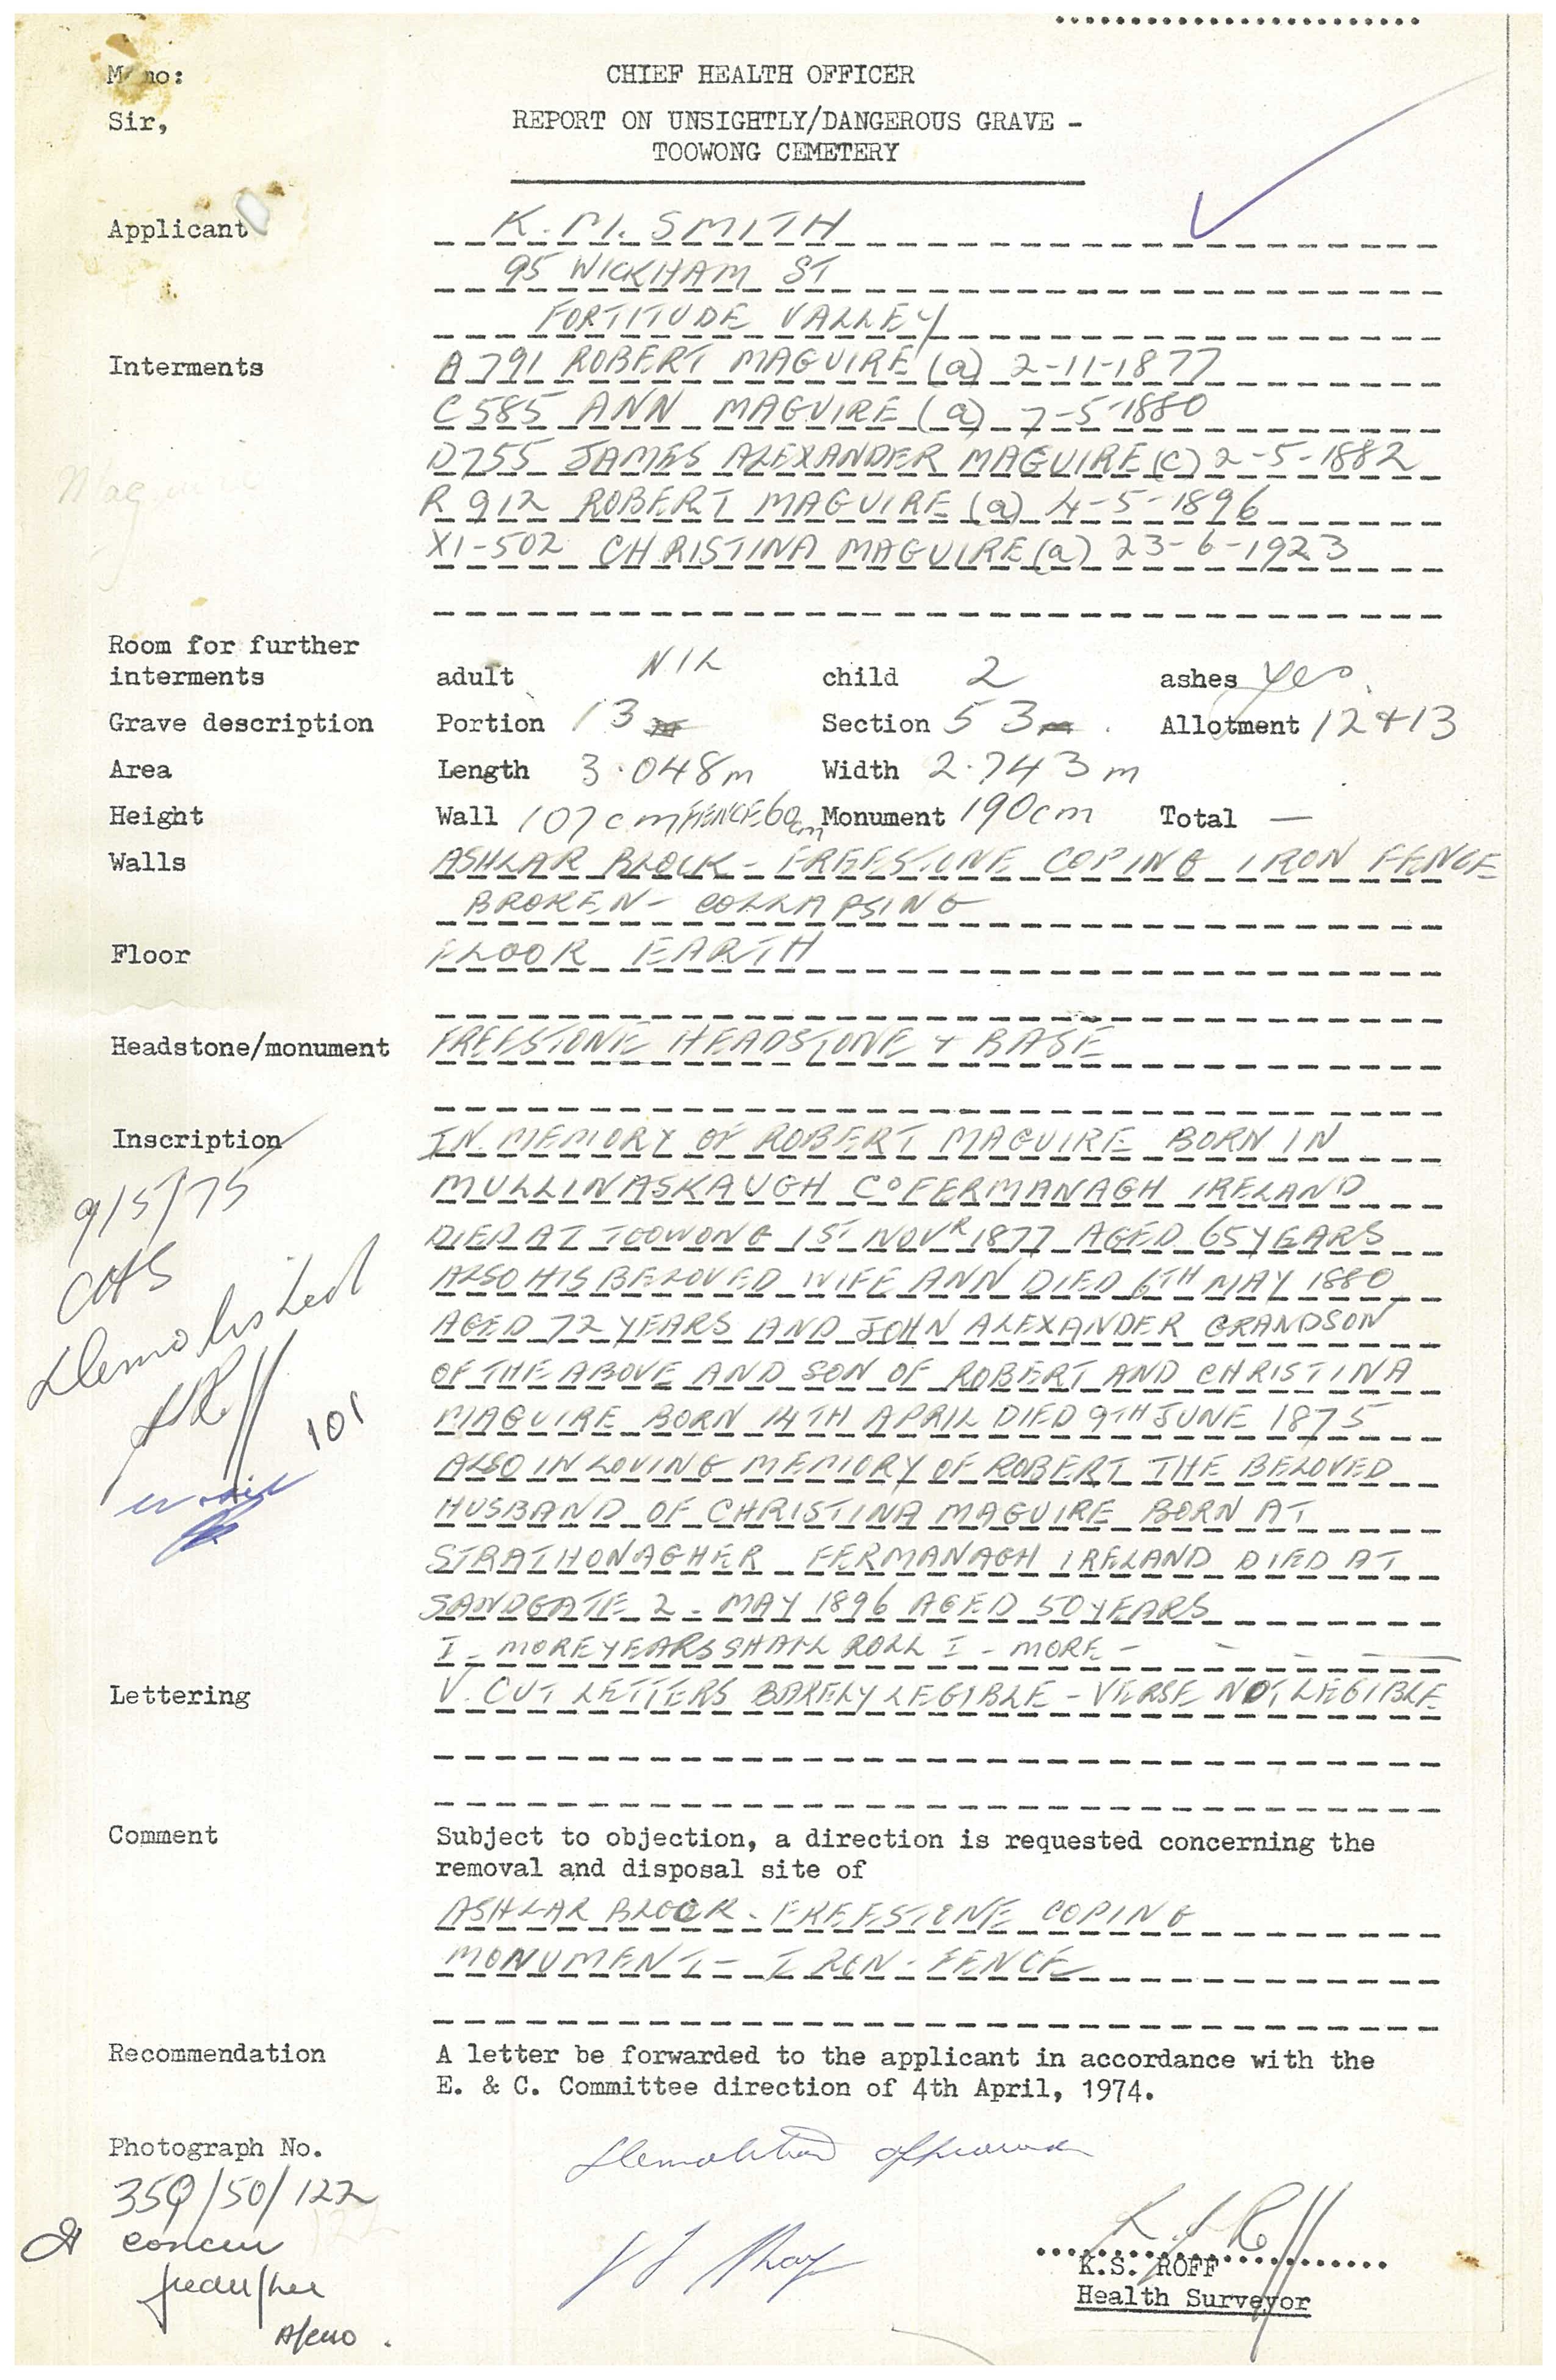 Memo:
CHIEF HEALTH OFFICER
Sir,
REPORT ON UNSIGHTLY/DANGEROUS GRAVE -
TOOWONG CEMETERY
Applicant K. M. SMITH
95 WICKHAM ST
FORTITUDE VALLEY
Interments A791 ROBERT MAGUIRE (a) 2-11-1877
C585 ANN MAGUIRE (a) 7-5-1880
D755 JAMES ALEXANDER MAGUIRE (c) 2-5-1882
Maguire
R 912 ROBERT MAGUIRE (a) 4-5-1896
XI-502 CHRISTINA MAGUIRE (a) 23-6-1923
Room for further
interments adult NIL child 2 ashes yes
Grave description Portion 13 Section 53 Allotment 12 & 13
Area Length 3.048m Width 2.743m
Height Wall 107cm FENCE 60cm Monument 190cm Total —
Walls ASHLAR BLOCK - FREESTONE COPING IRON FENCE
BROKEN - COLLAPSING
Floor FLOOR EARTH
Headstone/monument FREESTONE HEADSTONE & BASE
Inscription IN MEMORY OF ROBERT MAGUIRE BORN IN
MULLINASKAUGH Co FERMANAGH IRELAND
DIED AT TOOWONG 1ST NOVR 1877 AGED 65 YEARS
ALSO HIS BELOVED WIFE ANN DIED 6TH MAY 1880
AGED 72 YEARS AND JOHN ALEXANDER GRANDSON
OF THE ABOVE AND SON OF ROBERT AND CHRISTINA
MAGUIRE BORN 14TH APRIL DIED 9TH JUNE 1875
ALSO IN LOVING MEMORY OF ROBERT THE BELOVED
HUSBAND OF CHRISTINA MAGUIRE BORN AT
STRATHONAGHER FERMANAGH IRELAND DIED AT
SANDGATE 2 - MAY 1896 AGED 50 YEARS
I - MORE YEARS SHALL ROLL I - MORE -
9/5/75
CHS
Demolished
KSRoff
101
Lettering V. CUT LETTERS BARELY LEGIBLE - VERSE NOT LEGIBLE
Comment Subject to objection, a direction is requested concerning the
removal and disposal site of
ASHLAR BLOCK - FREESTONE COPING
MONUMENT - IRON - FENCE
Recommendation A letter be forwarded to the applicant in accordance with the
E. & C. Committee direction of 4th April, 1974.
Photograph No.
35Q/50/122
122
Demolition approved
I concur
K S Roff
K.S. ROFF
Health Surveyor